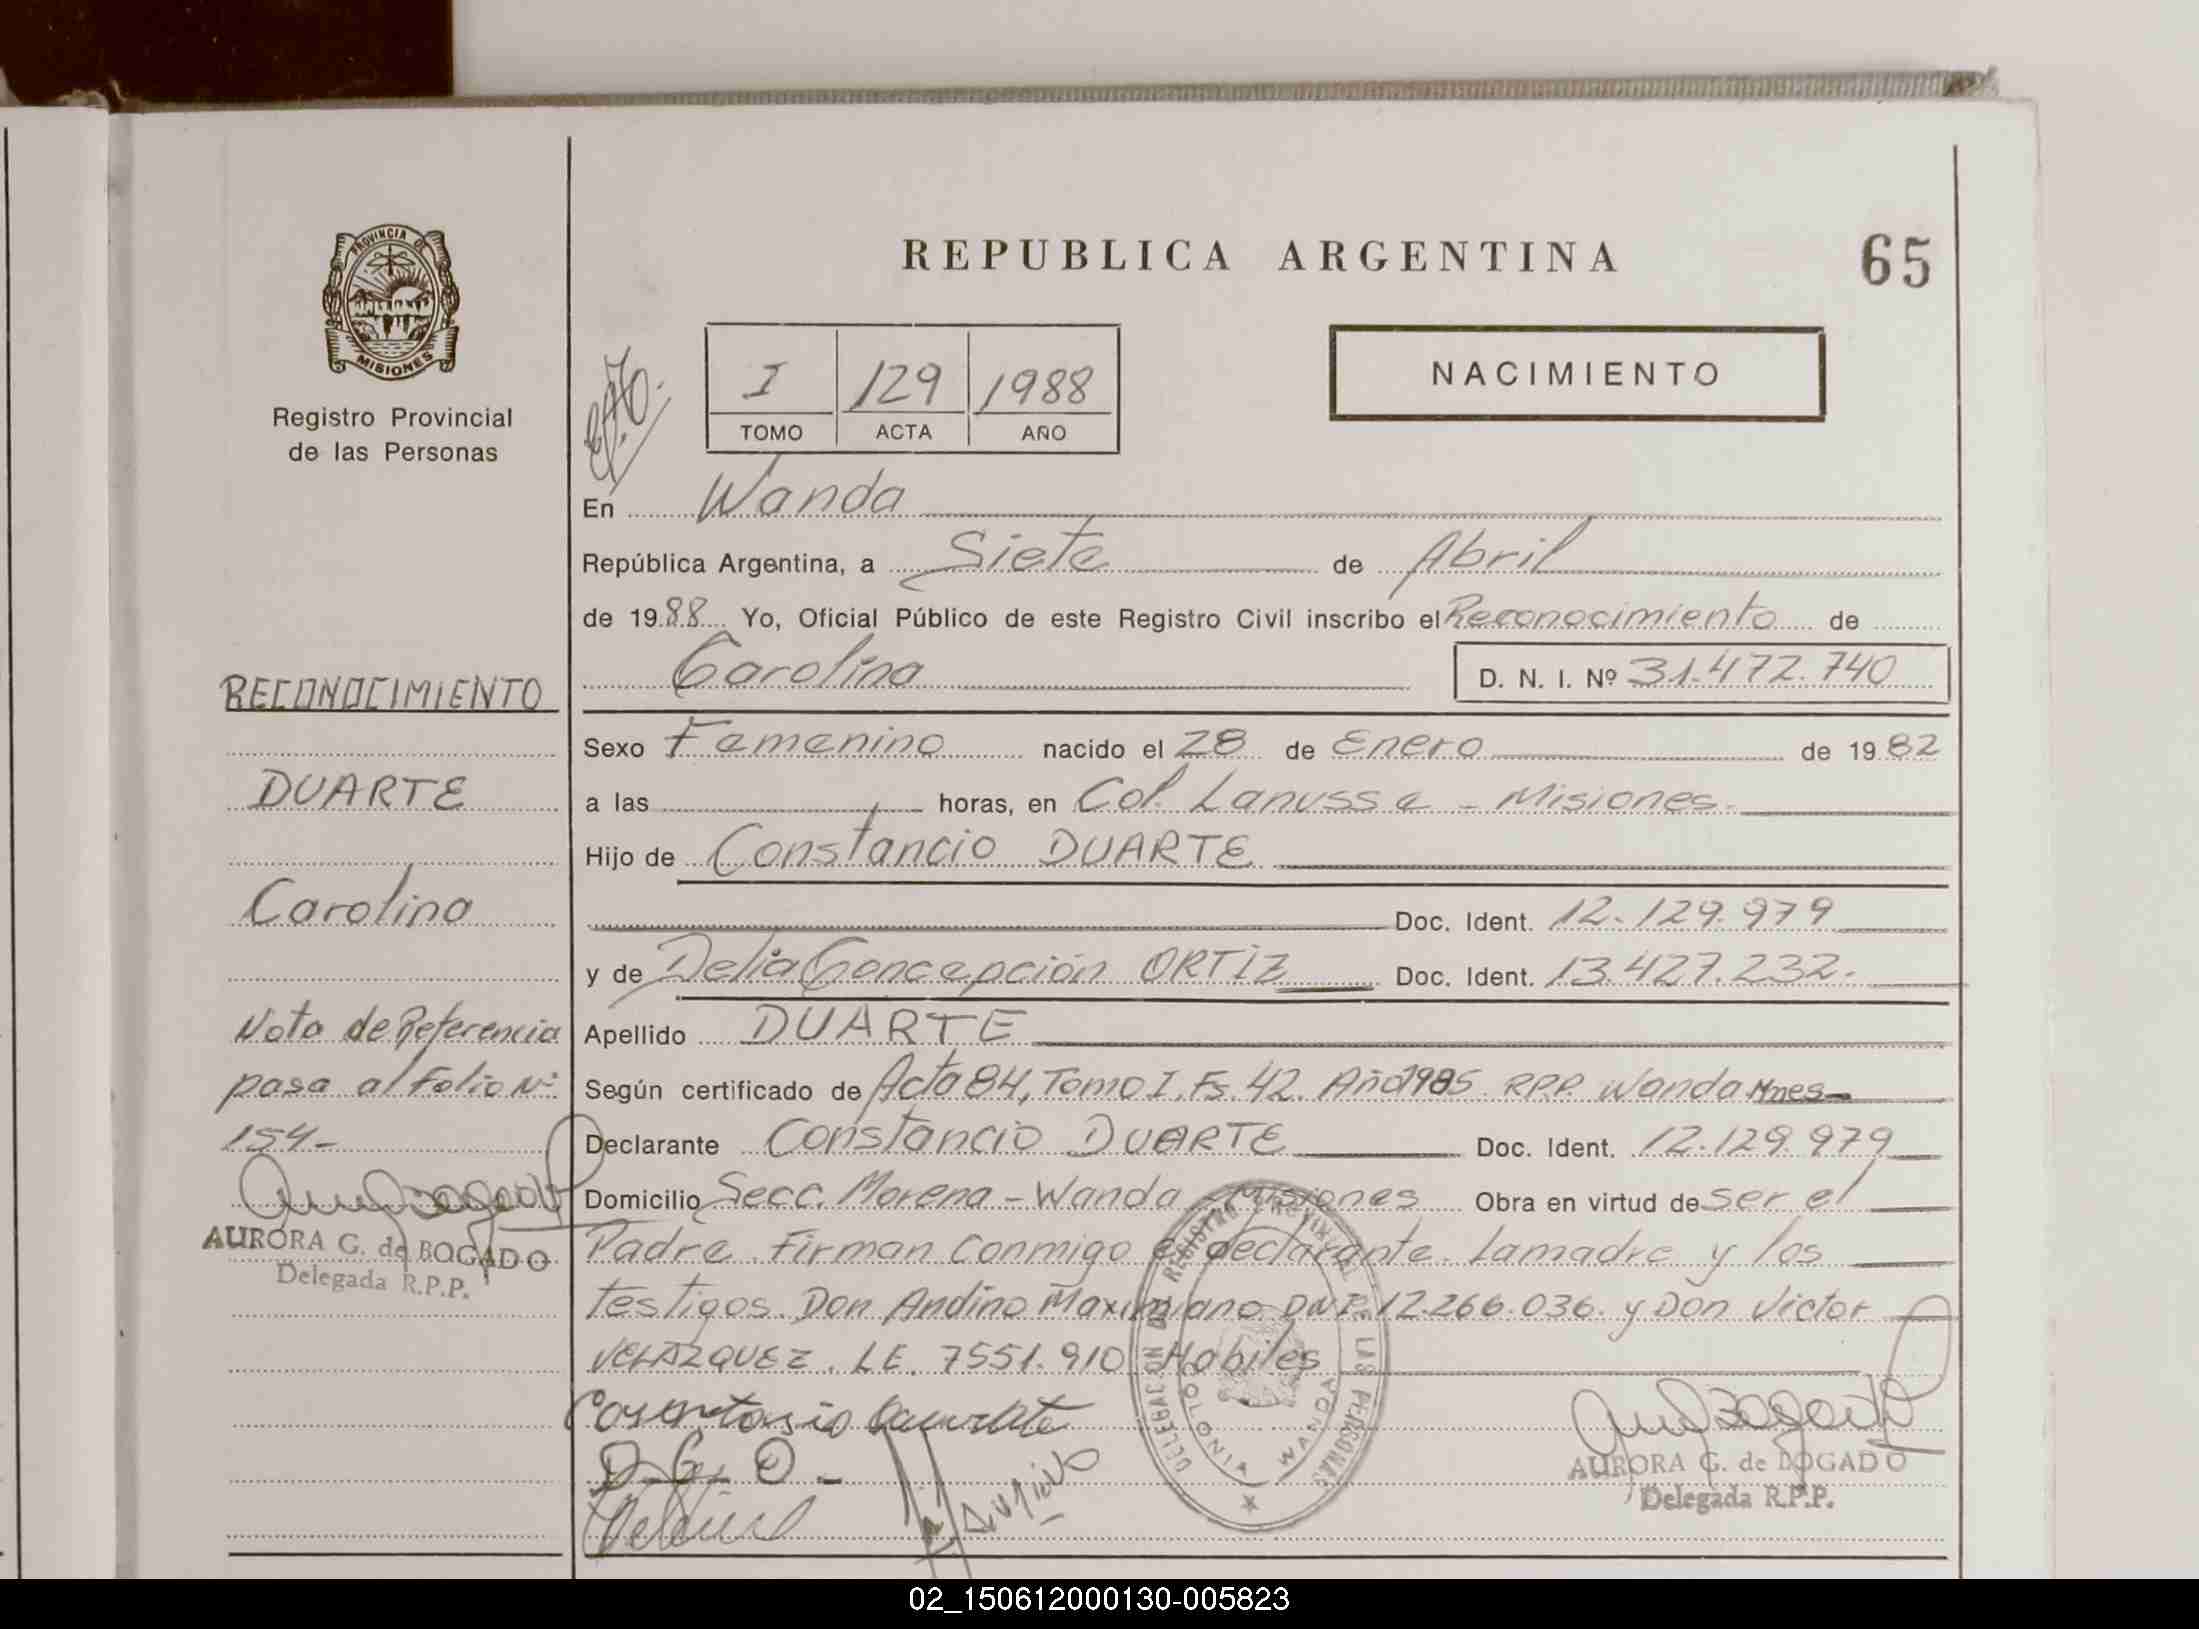 REPUBLICA ARGENTINA
65
PROVINCIA DE
MISIONES
Registro Provincial
de las Personas
I 129 1988
TOMO ACTA AÑO
NACIMIENTO
En Wanda
República Argentina, a Siete de Abril
de 1988 Yo, Oficial Público de este Registro Civil inscribo el Reconocimiento de
Carolina D. N. I. Nº 31.472.740
RECONOCIMIENTO
DUARTE
Carolina
Nota de Referencia
pasa al Folio Nº
154-
AURORA G. de BOGADO
Delegada R.P.P.
Sexo Femenino nacido el 28 de Enero de 1982
a las horas, en Col. Lanusse - Misiones.
Hijo de Constancio DUARTE
Doc. Ident. 12.129.979
y de Delia Concepción ORTIZ Doc. Ident. 13.427.232.
Apellido DUARTE
Según certificado de Acta 84, Tomo I. Fs. 42. Año 1985 R.P.P. Wanda Mnes-
Declarante Constancio DUARTE Doc. Ident. 12.129.979
Domicilio Secc. Morena - Wanda - Misiones Obra en virtud de ser el
Padre. Firman conmigo el declarante. La madre y los
testigos. Don Andino Maximiano DNI. 12.266.036. y Don Victor
VELAZQUEZ. LE. 7551.910 Habiles
D. C. O.-
Andino
DELEGACION DEL REGISTRO PROVINCIAL DE LAS PERSONAS
COLONIA WANDA
AURORA G. de BOGADO
Delegada R.P.P.
02_150612000130-005823